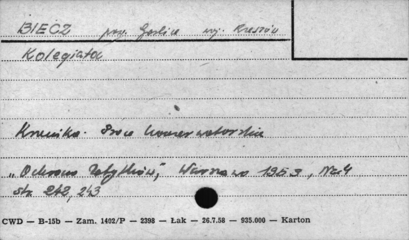 BIECZ pow. Gorlice woj. Rzeszów
Kolegiata
Kronika. Prace konserwatorskie
„Ochrona Zabytków", Warszawa 1953, Nr. 4
str 242, 243
CWD — B-15b — Zam. 1402/P — 2398 — Łak — 26.7.58 — 935.000 — Karton